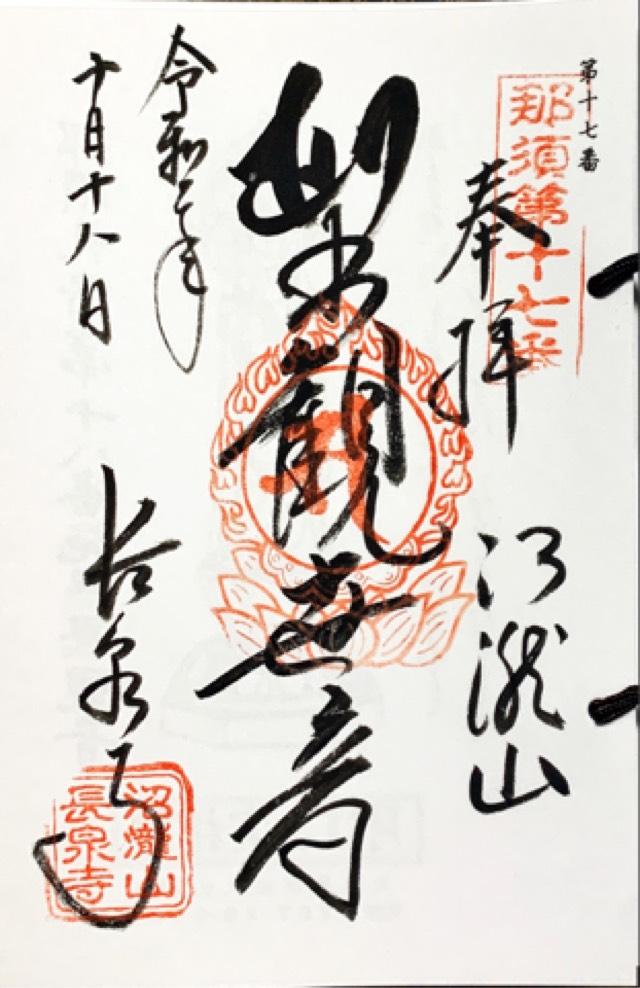 第十七番
那須第十七番
奉拝
沼瀧山
聖觀世音
令和二年
十月十八日
長泉寺
沼瀧山
長泉寺